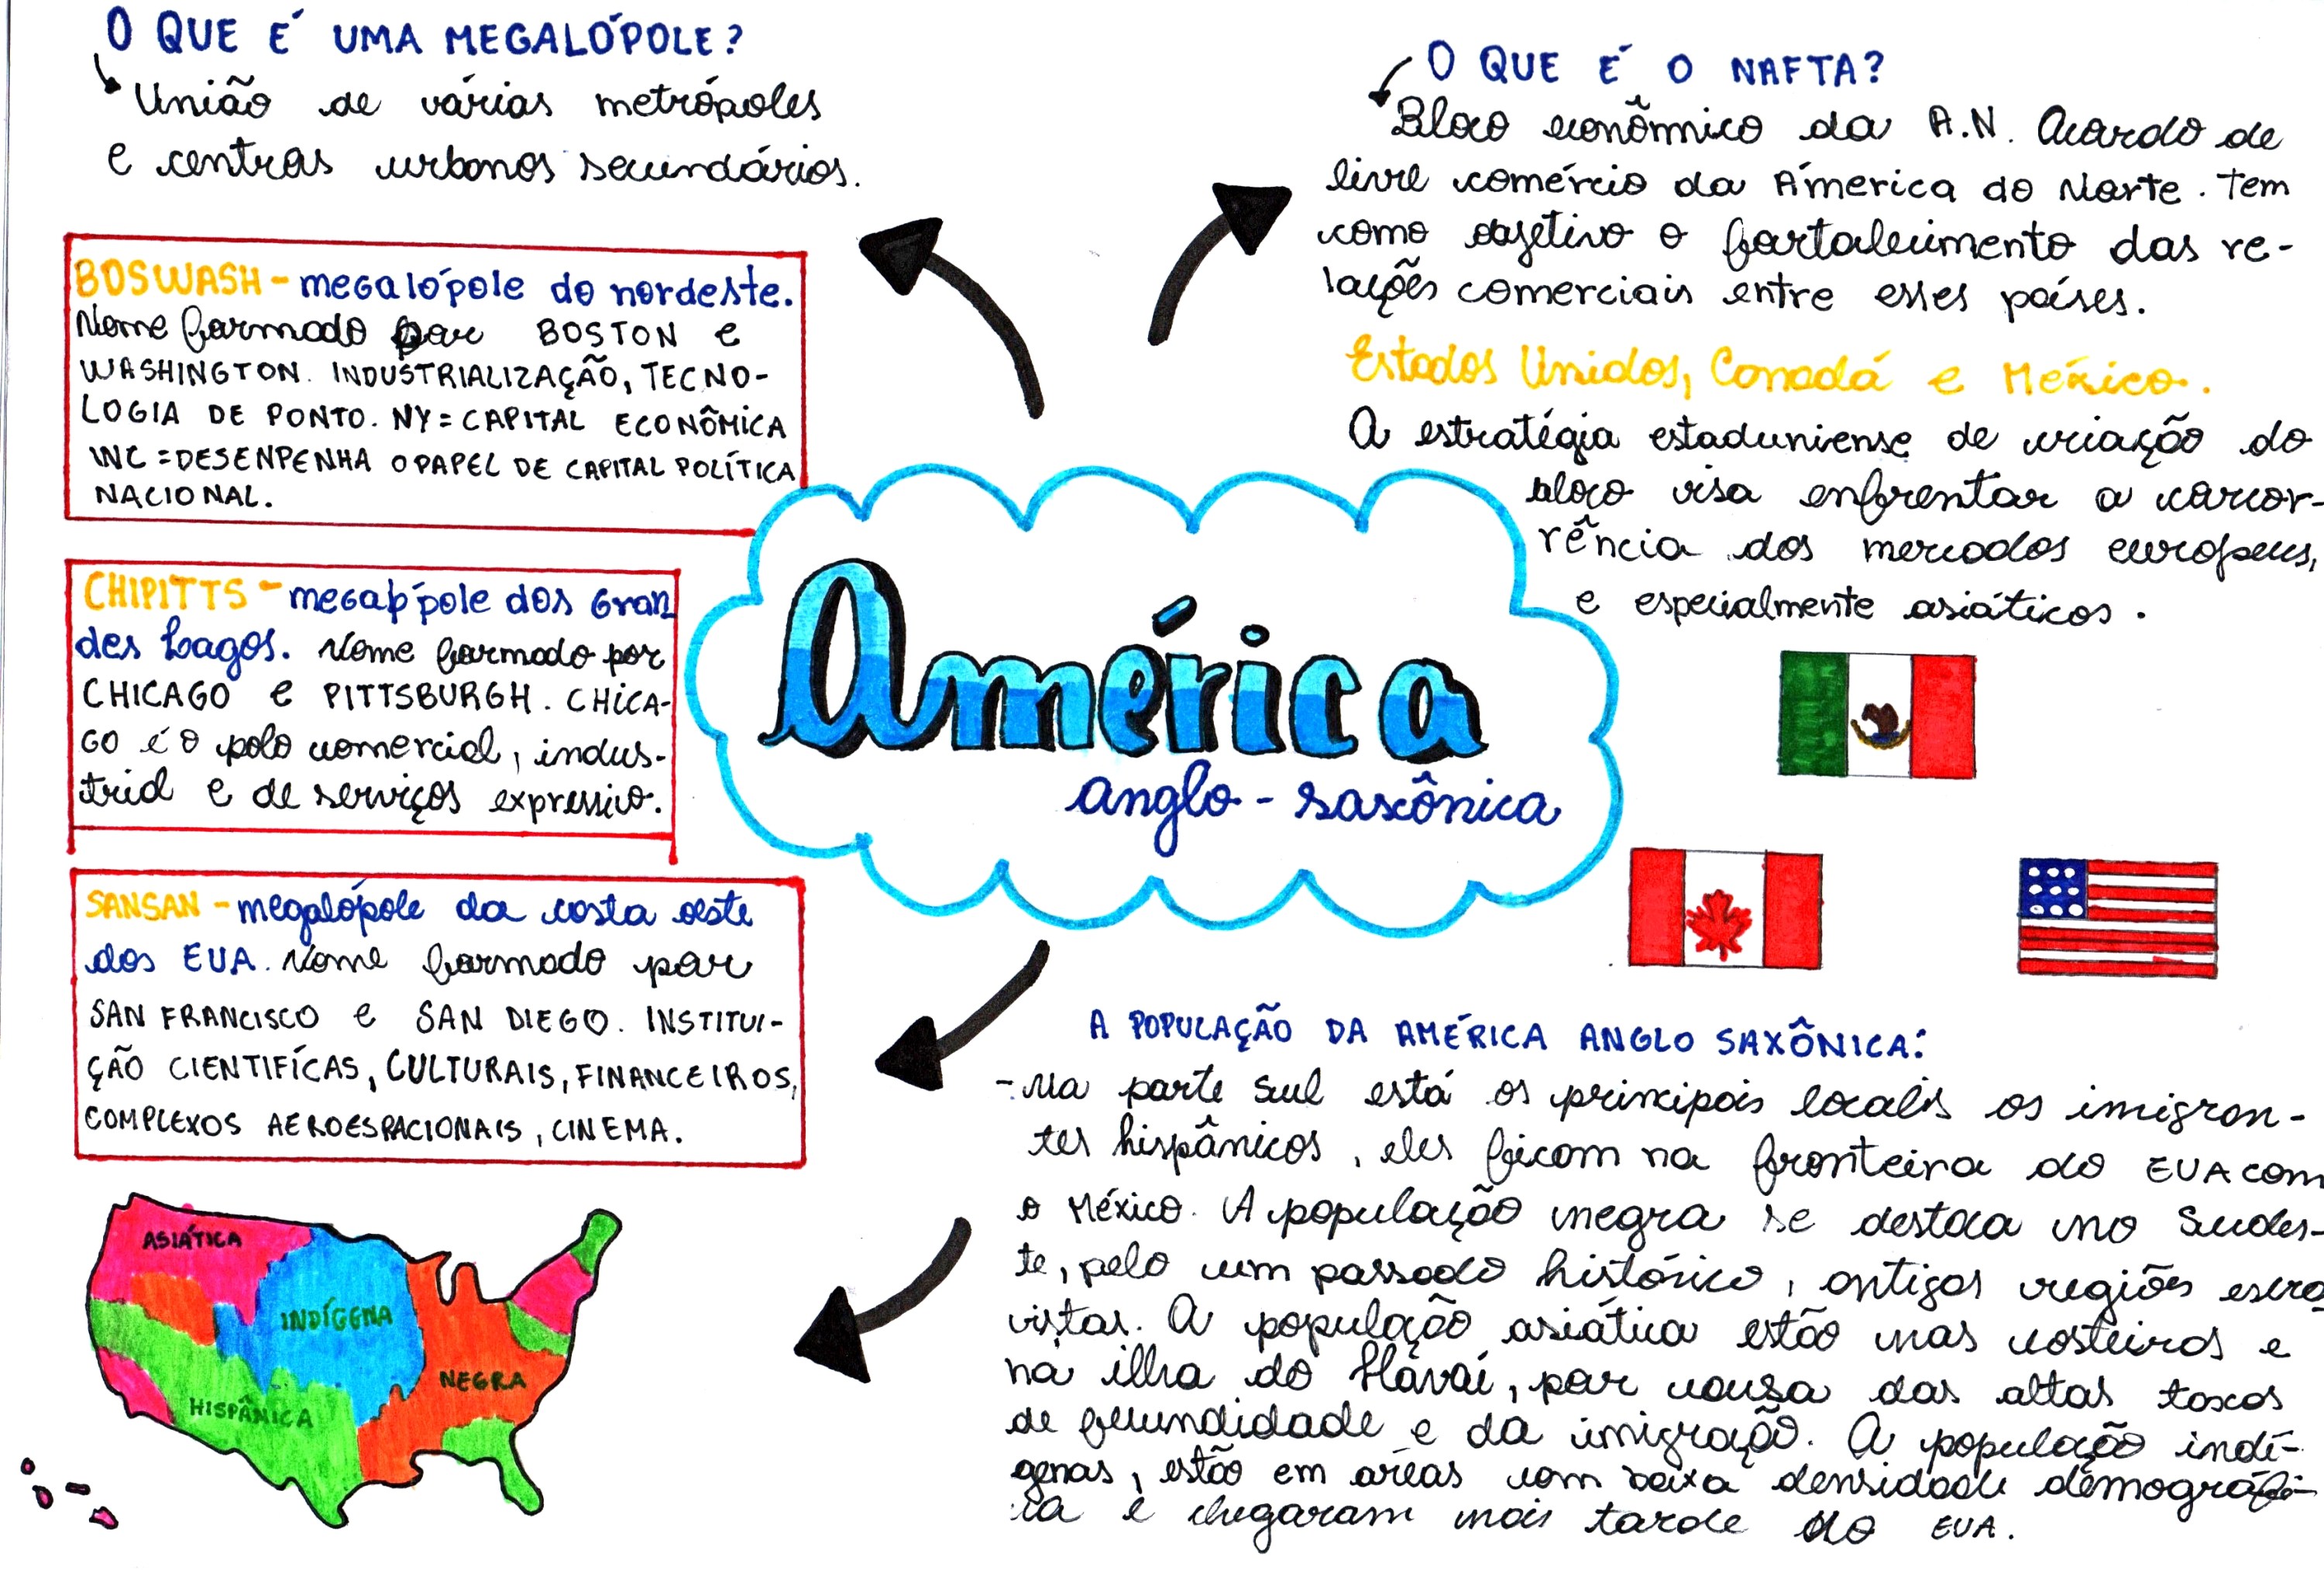 O QUE É UMA MEGALÓPOLE?
União de várias metrópoles
e centros urbanos secundários.
BOSWASH - megalópole do nordeste.
Nome formado por BOSTON e
WASHINGTON. INDUSTRIALIZAÇÃO, TECNO-
LOGIA DE PONTO. NY = CAPITAL ECONÔMICA
WNC = DESENPENHA O PAPEL DE CAPITAL POLÍTICA
NACIONAL.
CHIPITTS - megalópole dos Gran
des Lagos. Nome formado por
CHICAGO e PITTSBURGH. CHICA-
GO é o polo comercial, indus-
trial e de serviços expressivo.
SANSAN - megalópole da costa oeste
dos EUA. Nome formado por
SAN FRANCISCO e SAN DIEGO. INSTITUI-
ÇÃO CIENTIFÍCAS, CULTURAIS, FINANCEIROS,
COMPLEXOS AEROESPACIONAIS, CINEMA.
ASIÁTICA
INDÍGENA
NEGRA
HISPÂNICA
América
anglo-saxônica
O QUE É O NAFTA?
Bloco econômico da A.N. Acordo de
livre comércio da América do Norte. Tem
como objetivo o fortalecimento das re-
lações comerciais entre esses países.
Estados Unidos, Canadá e México.
A estratégia estaduniense de criação do
bloco visa enfrentar a concor-
rência dos mercados europeus,
e especialmente asiáticos.
A POPULAÇÃO DA AMÉRICA ANGLO SAXÔNICA:
- Na parte Sul está os principais locais os imigran-
tes hispânicos, eles ficam na fronteira do EUA com
o México. A população negra se destaca no Sudes-
te, pelo um passado histórico, antigas regiões escra-
vistas. A população asiática estão nas costeiras e
na ilha do Havaí, por causa das altas taxas
de fecundidade e da imigração. A população indí-
genas, estão em áreas com baixa densidade demográfi-
ca e chegaram mais tarde do EUA.